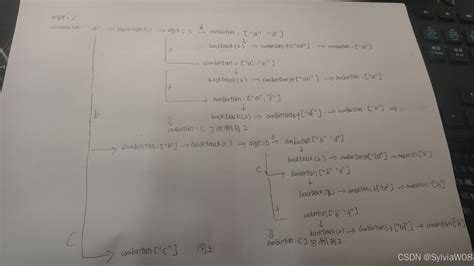 combination: "a" → backtrack(1) → digits = 3 d → combination: ["a" "d"]
backtrack(2) → combinations["ad"] → combination: ["a"]
e
→ combination: ["a", "e"]
backtrack(2) → combinations["ae"] → combination: ["a"]
f
→ combination: ["a", "f"]
backtrack(2) → combinations["af"] → combination: ["a"] →
combination: []
b
→ combination: ["b"] → backtrack(1) → digits=3 d → combination: ["b" "d"]
backtrack(2) → combinations["bd"] → combination: ["b"]
e
→ combination: ["b", "e"]
backtrack(2) → combinations["be"] → combination: ["b"]
f
combination: ["b", "f"]
backtrack(2) → combinations["bf"] → combination: ["b"]
combination: []
C
→ combination: ["C"] 同上
CSDN @SylviaW08